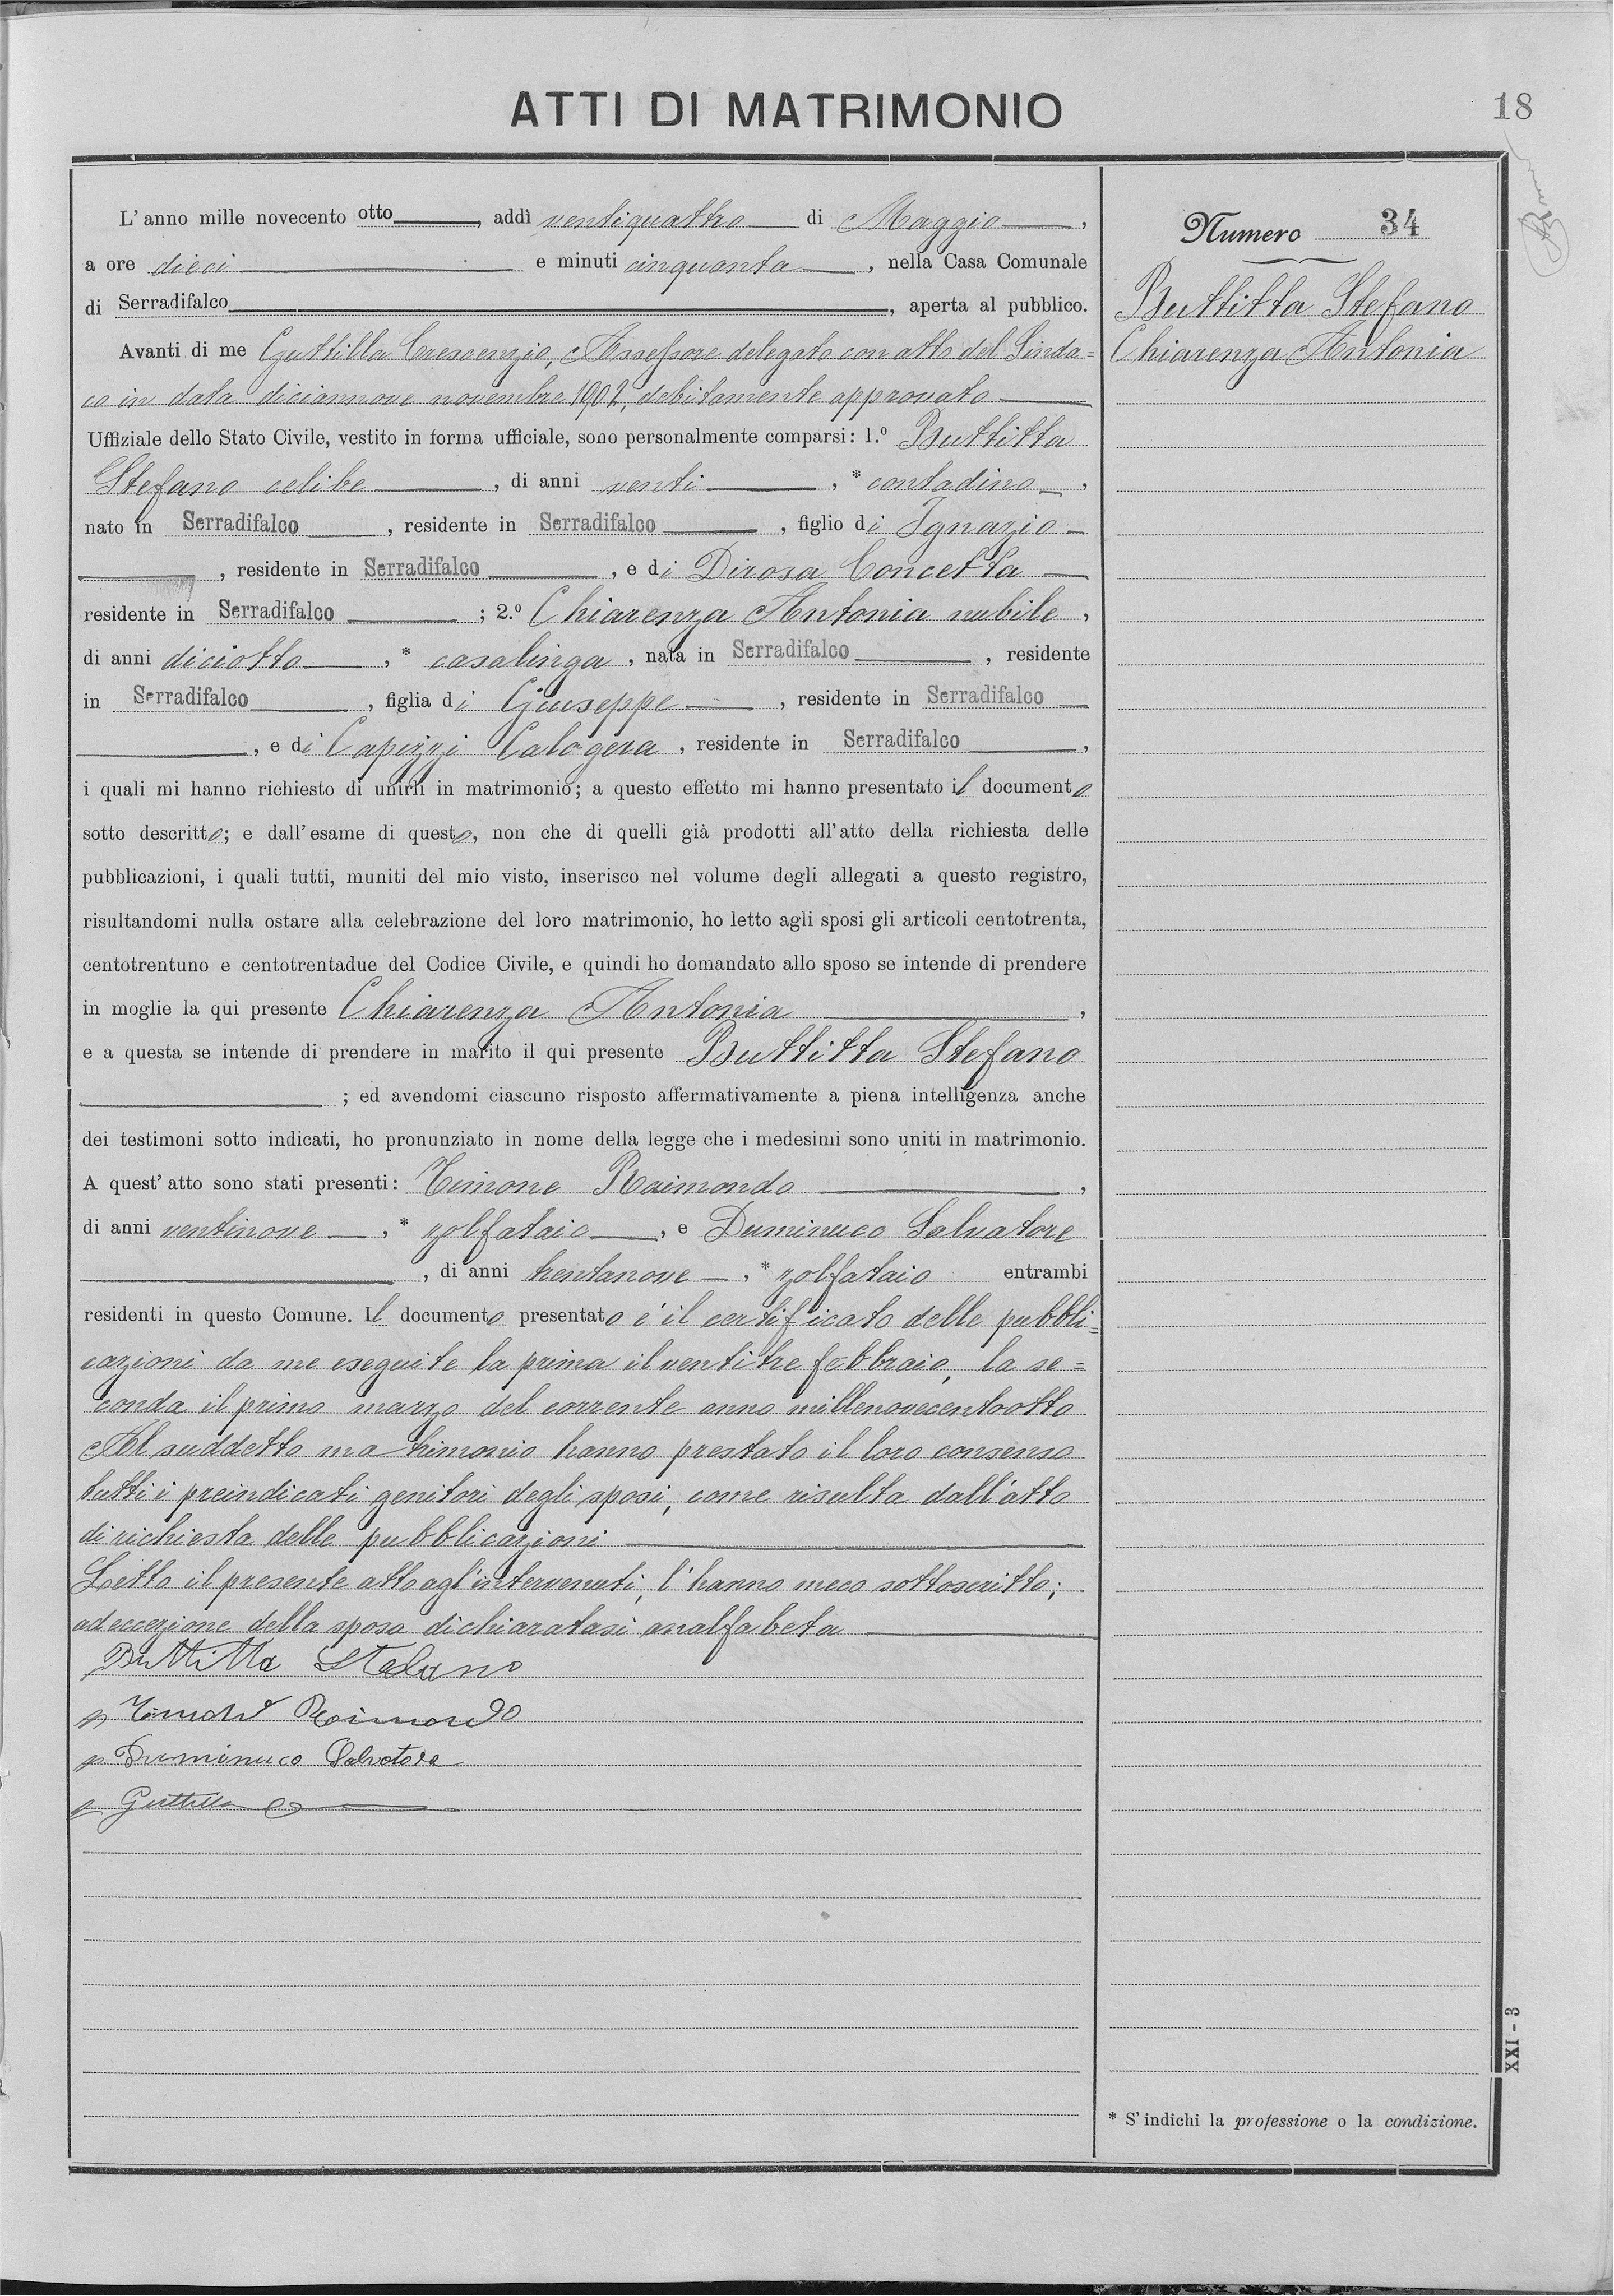 ATTI DI MATRIMONIO
18
L'anno mille novecento otto, addì ventiquattro di Maggio,
a ore dieci e minuti cinquanta, nella Casa Comunale
di Serradifalco, aperta al pubblico.
Avanti di me Guttilla Crescenzio, Assessore delegato con atto del Sinda=
co in data diciannove novembre, debitamente approvato
Uffiziale dello Stato Civile, vestito in forma ufficiale, sono personalmente comparsi: 1.º Buttitta
Stefano celibe, di anni venti, * contadino,
nato in Serradifalco, residente in Serradifalco, figlio di Ignazio
, residente in Serradifalco, e di Dirosa Concetta
residente in Serradifalco; 2.º Chiarenza Antonia nubile,
di anni diciotto, * casalinga, nata in Serradifalco, residente
in Serradifalco, figlia di Giuseppe, residente in Serradifalco
, e di Capizzi Calogera, residente in Serradifalco,
i quali mi hanno richiesto di unirli in matrimonio; a questo effetto mi hanno presentato il documento
sotto descritto; e dall'esame di questo, non che di quelli già prodotti all'atto della richiesta delle
pubblicazioni, i quali tutti, muniti del mio visto, inserisco nel volume degli allegati a questo registro,
risultandomi nulla ostare alla celebrazione del loro matrimonio, ho letto agli sposi gli articoli centotrenta,
centotrentuno e centotrentadue del Codice Civile, e quindi ho domandato allo sposo se intende di prendere
in moglie la qui presente Chiarenza Antonia,
e a questa se intende di prendere in marito il qui presente Buttitta Stefano
; ed avendomi ciascuno risposto affermativamente a piena intelligenza anche
dei testimoni sotto indicati, ho pronunziato in nome della legge che i medesimi sono uniti in matrimonio.
A quest'atto sono stati presenti: Timone Raimondo,
di anni ventinove, * zolfataio, e Duminuco Salvatore
, di anni trentanove, * zolfataio entrambi
residenti in questo Comune. Il documento presentato è il certificato delle pubbli=
cazioni da me eseguite la prima il ventitre febbraio, la se=
conda il primo marzo del corrente anno millenovecentootto
Al suddetto matrimonio hanno prestato il loro consenso
tutti i preindicati genitori degli sposi, come risulta dall'atto
di richiesta delle pubblicazioni
Letto il presente atto agl'intervenuti, l'hanno meco sottoscritto;
ad eccezione della sposa dichiaratasi analfabeta
Buttitta Stefano
Raimondo
Duminuco Salvatore
Guttilla
Numero 34
Buttitta Stefano
Chiarenza Antonia
XXI - 3
* S'indichi la professione o la condizione.